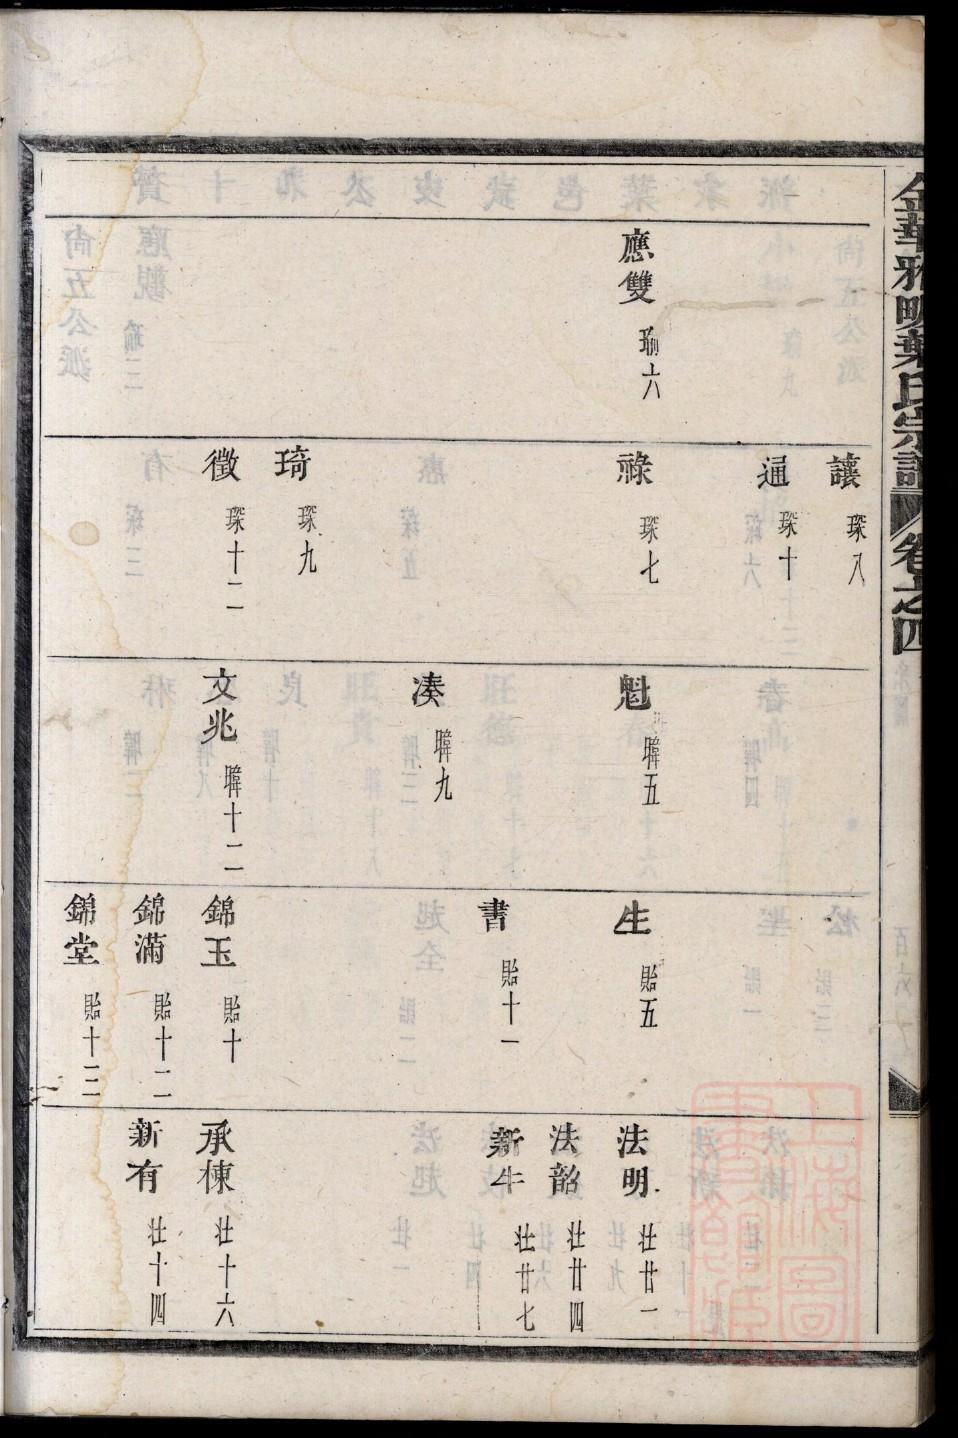 金華雅畈葉氏宗譜 卷之四
應雙 瑜六
讓 琛八
通 琛十
祿 琛七
琦 琛九
徵 琛十二
魁 五
湊 九
文兆 十二
生 貽五
書 貽十一
錦玉 貽十
錦滿 貽十二
錦堂 貽十三
法明 壮廿一
法韶 壮廿四
新牛 壮廿七
承棟 壮十六
新有 壮十四
上海圖書館藏